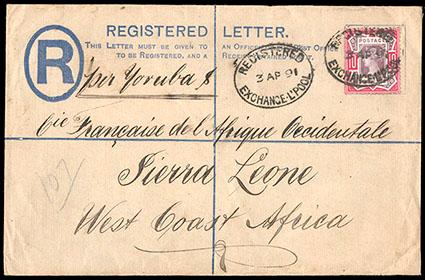 REGISTERED LETTER.
THIS LETTER MUST BE GIVEN TO AN OFFICER OF THE POST OFFICE
TO BE REGISTERED, AND A RECEIPT OBTAINED
R
per Yoruba
REGISTERED
3 AP 91
EXCHANGE L'POOL
REGISTERED
EXCHANGE L'POOL
POSTAGE
Cie Française de l'Afrique Occidentale
107
Sierra Leone
West Coast Africa